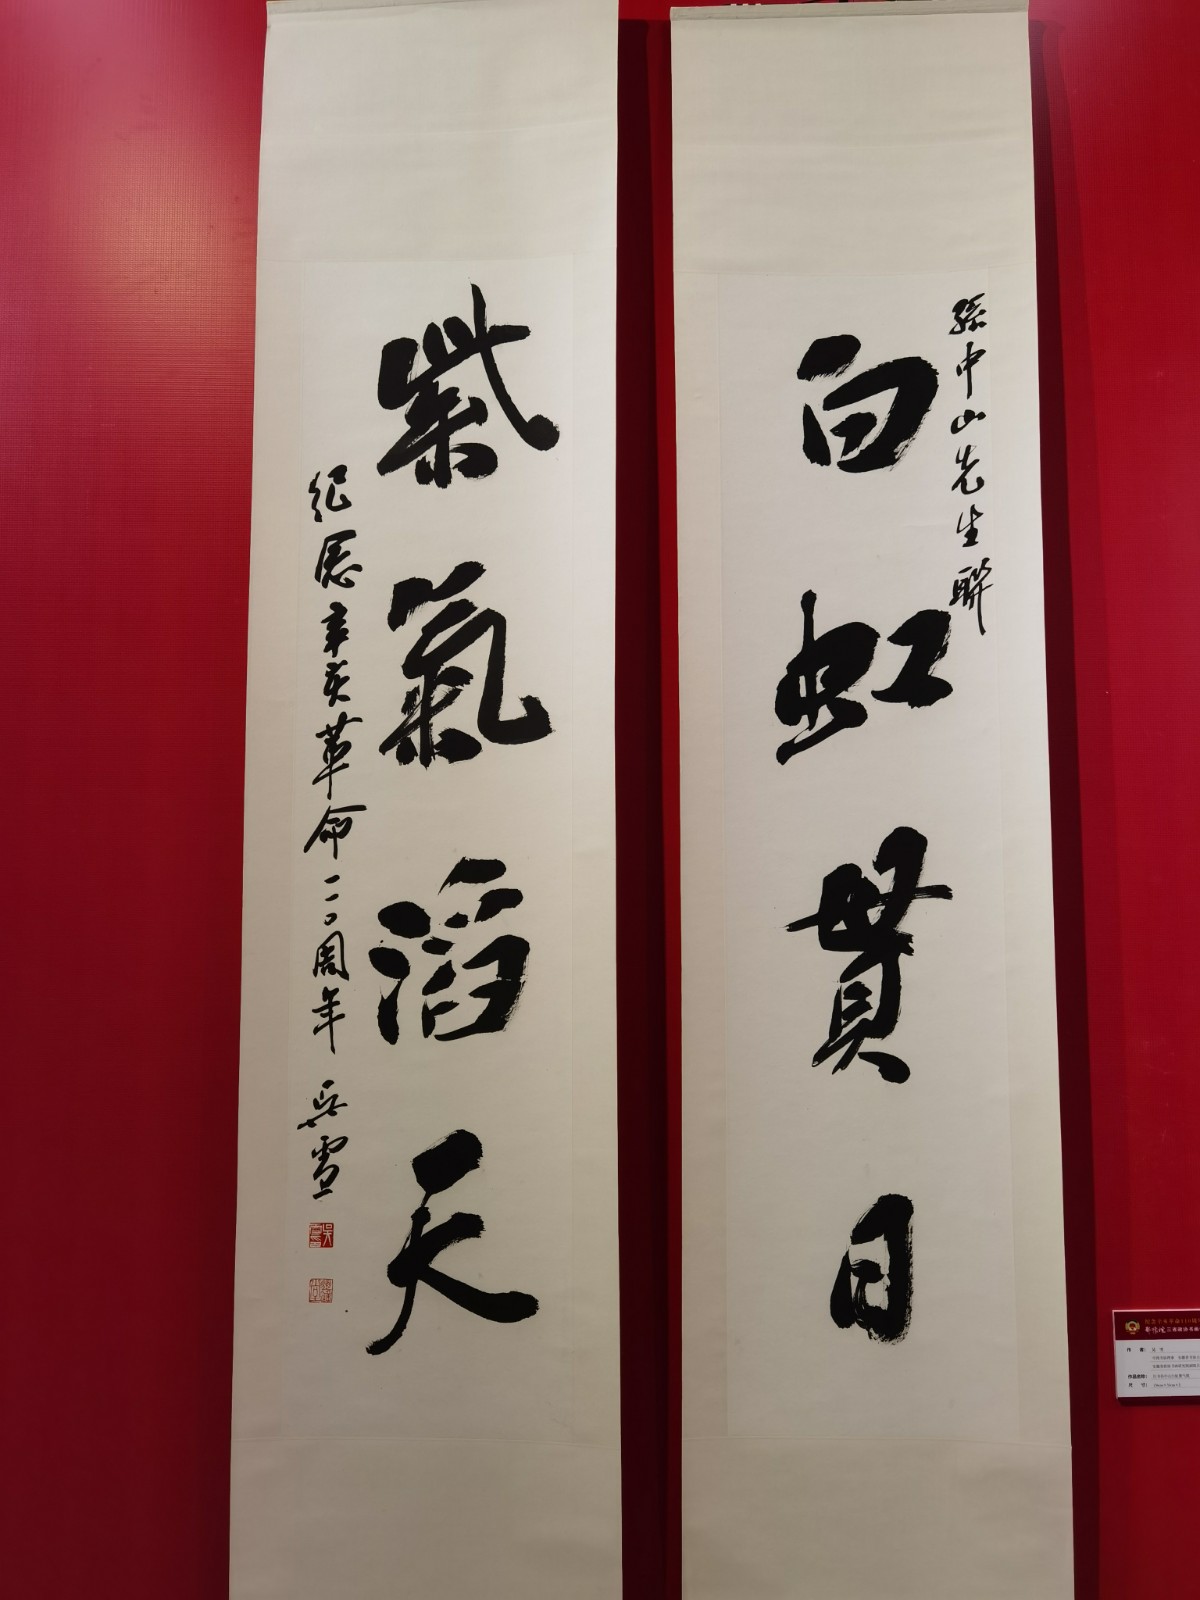 孫中山先生聯
白虹貫日
紫氣滔天
紀念辛亥革命一一〇周年 吴雪